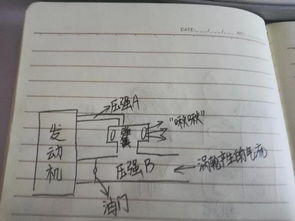 DATE
压强A
"啾啾"
弹簧
发动机
压强B
涡轮产生的气流
油门